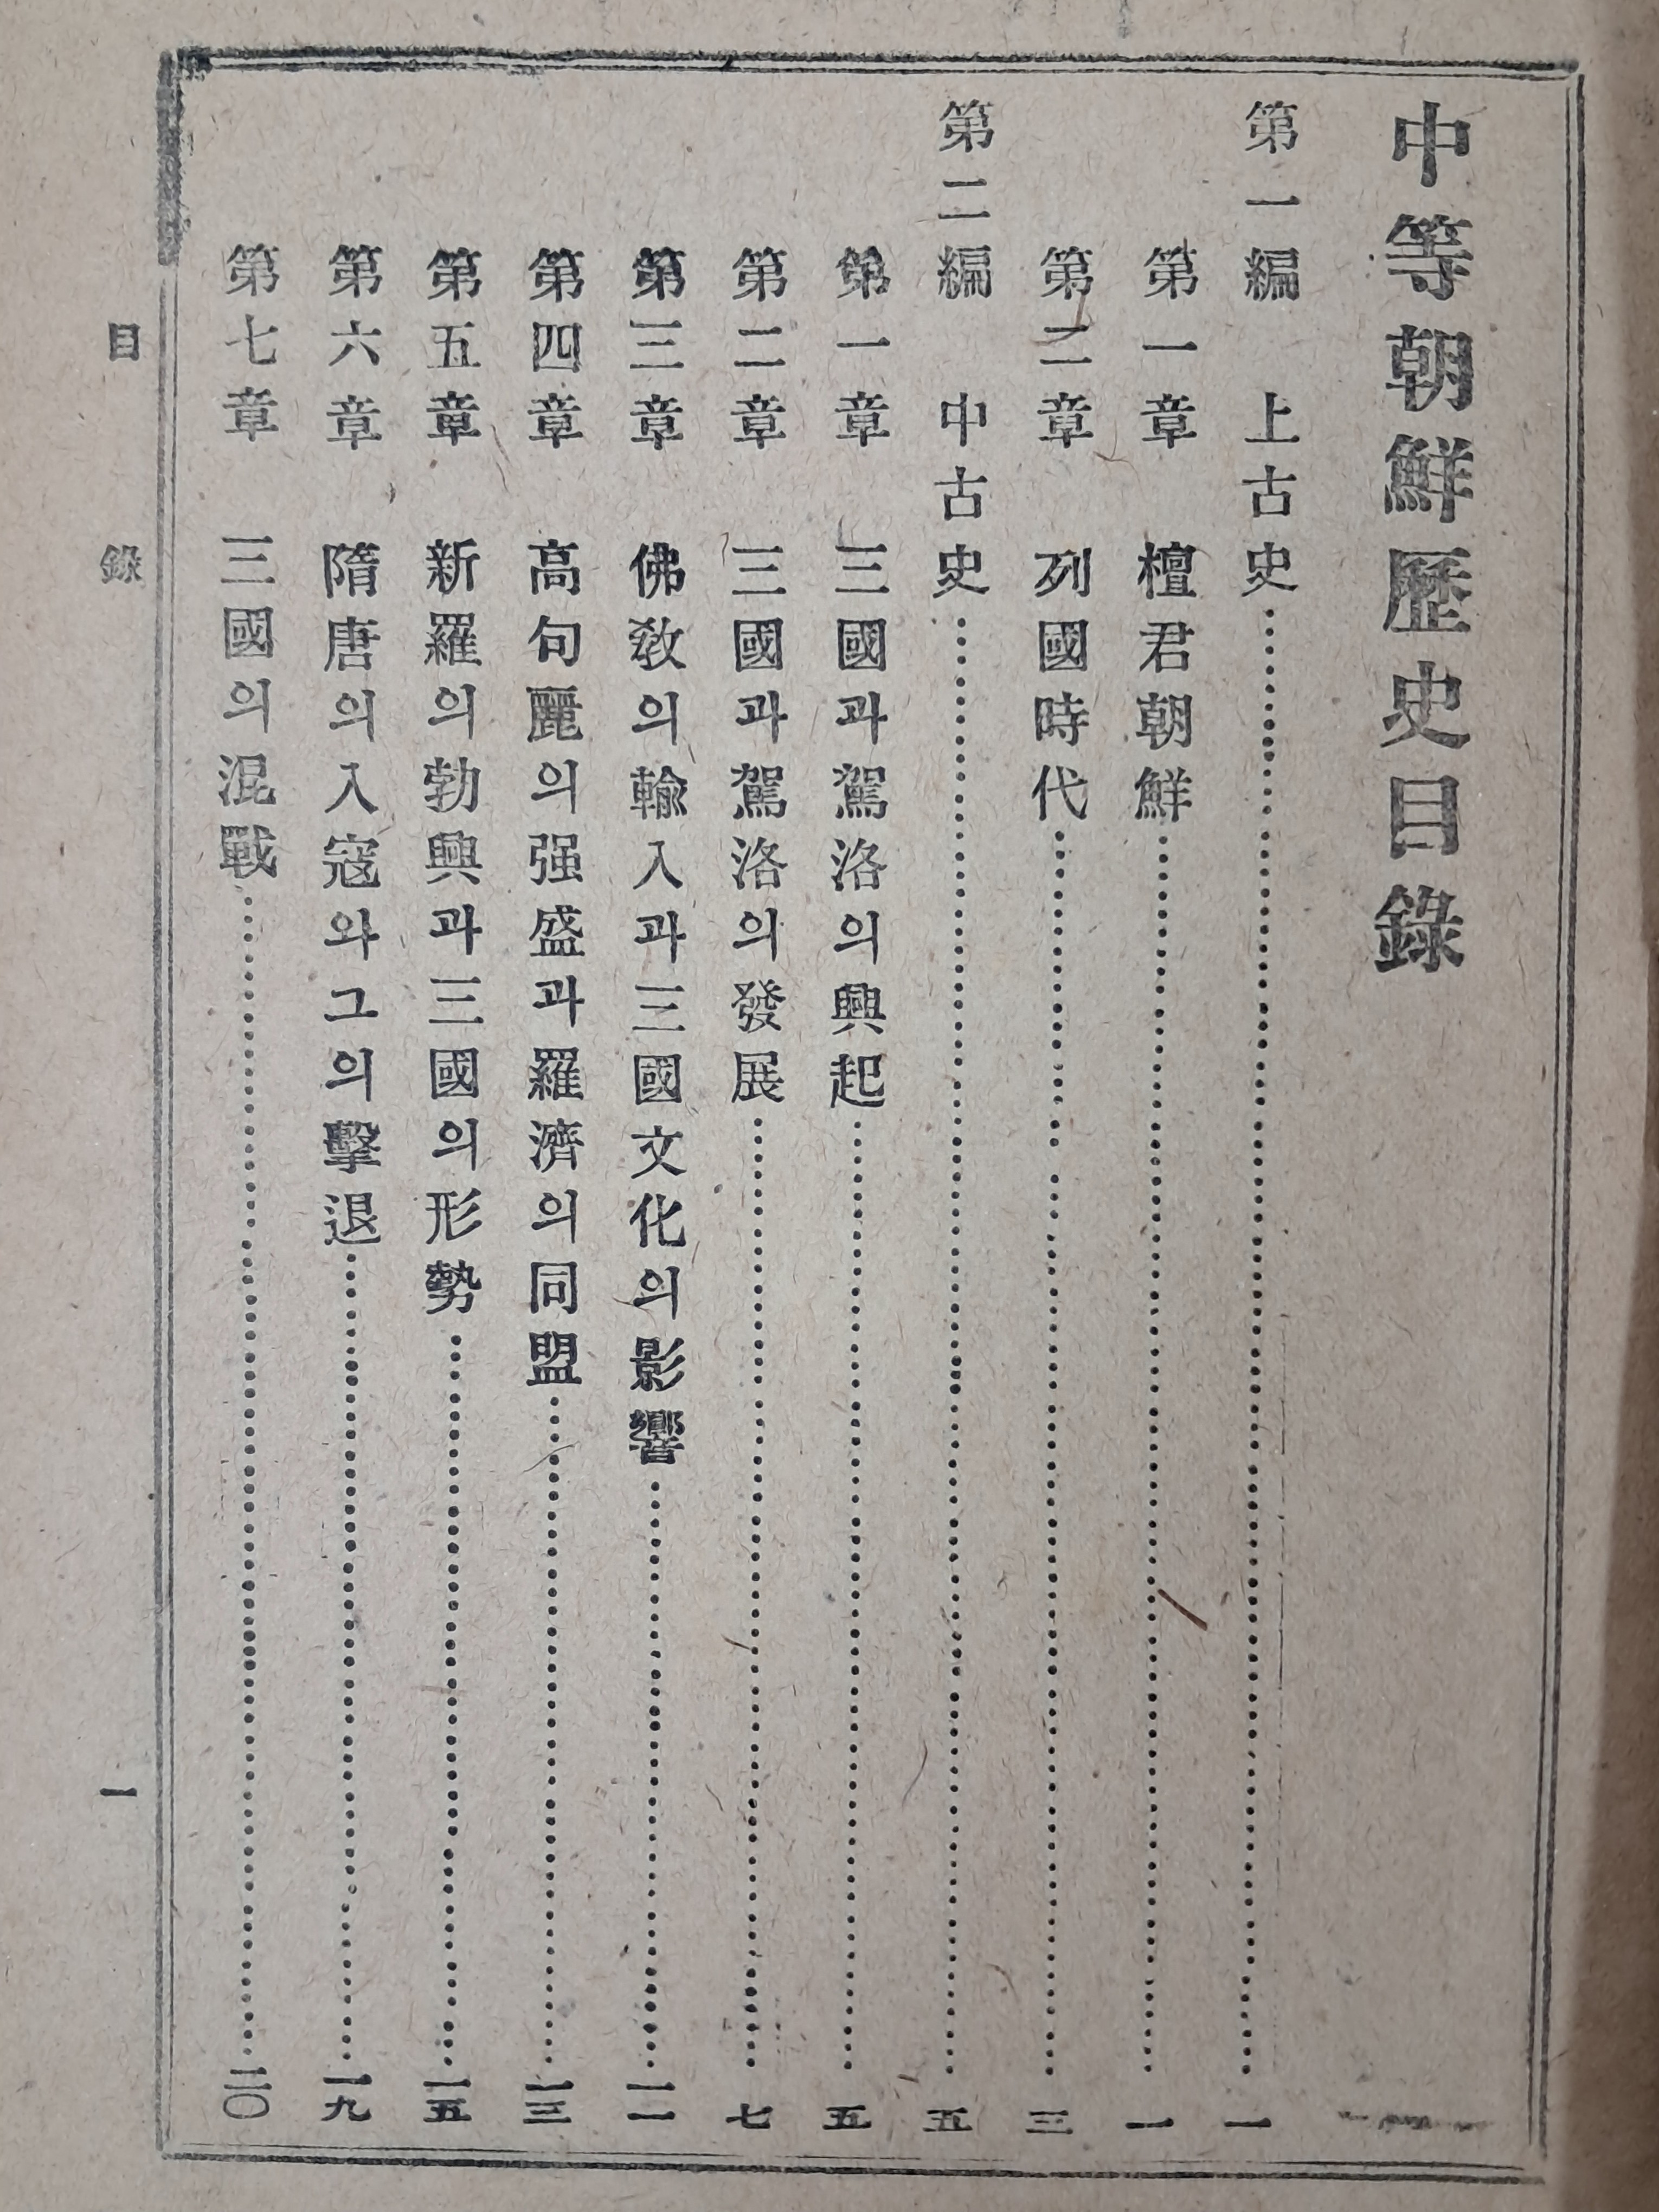 中等朝鮮歷史目錄
第一編 上古史……一
第一章 檀君朝鮮……一
第二章 列國時代……三
第二編 中古史……五
第一章 三國과駕洛의興起……五
第二章 三國과駕洛의發展……七
第三章 佛敎의輸入과三國文化의影響……一一
第四章 高句麗의强盛과羅濟의同盟……一三
第五章 新羅의勃興과三國의形勢……一五
第六章 隋唐의入寇와그의擊退……一九
第七章 三國의混戰……二〇
目錄 一